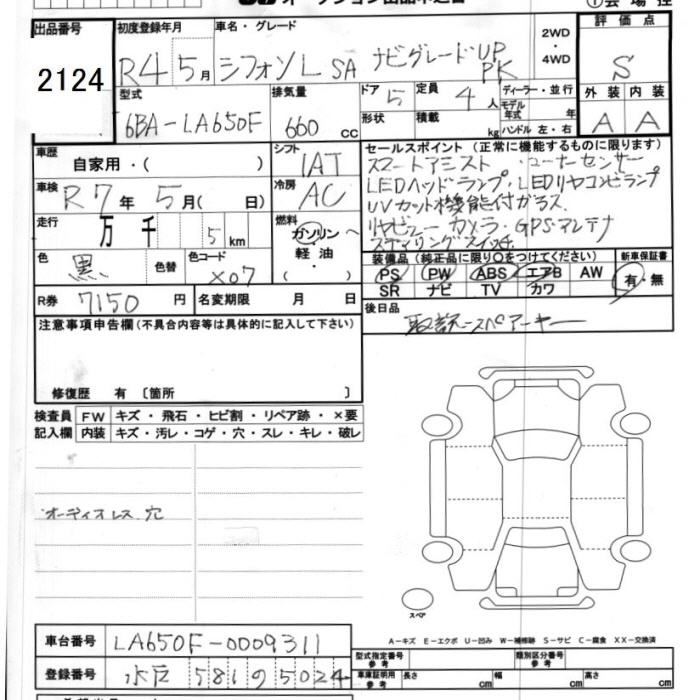 出品番号 2124
初度登録年月 R4 5月
車名・グレード シフォン L SA ナビグレードUP PK
2WD・4WD
評価点 S
外装 A 内装 A
型式 6BA-LA650F
排気量 660 cc
ドア 5
形状
定員 4人
積載 kg
ディーラー・並行
モデル年式 年
ハンドル 左・右
車歴 自家用・( )
シフト 1AT
車検 R7年 5月( 日)
冷房 AC
走行 万 千 5 km
燃料 ガソリン 軽油 ( ・ )
色 黒 色替
色コード X07
R券 7150 円
名変期限 月 日
セールスポイント (正常に機能するものに限ります)
スマートアシスト・コーナーセンサー
LEDヘッドランプ・LEDリヤコンビランプ
UVカット機能付ガラス
リヤビューカメラ・GPSアンテナ
ステアリングスイッチ
装備品(純正品に限り〇をつけてください)
PS PW ABS エアB AW
SR ナビ TV カワ
新車保証書 有・無
後日品
取説 スペアーキー
注意事項申告欄(不具合内容等は具体的に記入して下さい)
修復歴 有 〔箇所 〕
検査員記入欄
FW キズ・飛石・ヒビ割・リペア跡・×要
内装 キズ・汚レ・コゲ・穴・スレ・キレ・破レ
オーディオレス穴
スペア
A-キズ E-エクボ U-凹み W-補修跡 S-サビ C-腐食 XX-交換済
車台番号 LA650F-0009311
登録番号 水戸 581 の 5024
型式指定番号 参考
類別区分番号 参考
車庫証明用 参考 長さ cm 幅 cm 高さ cm